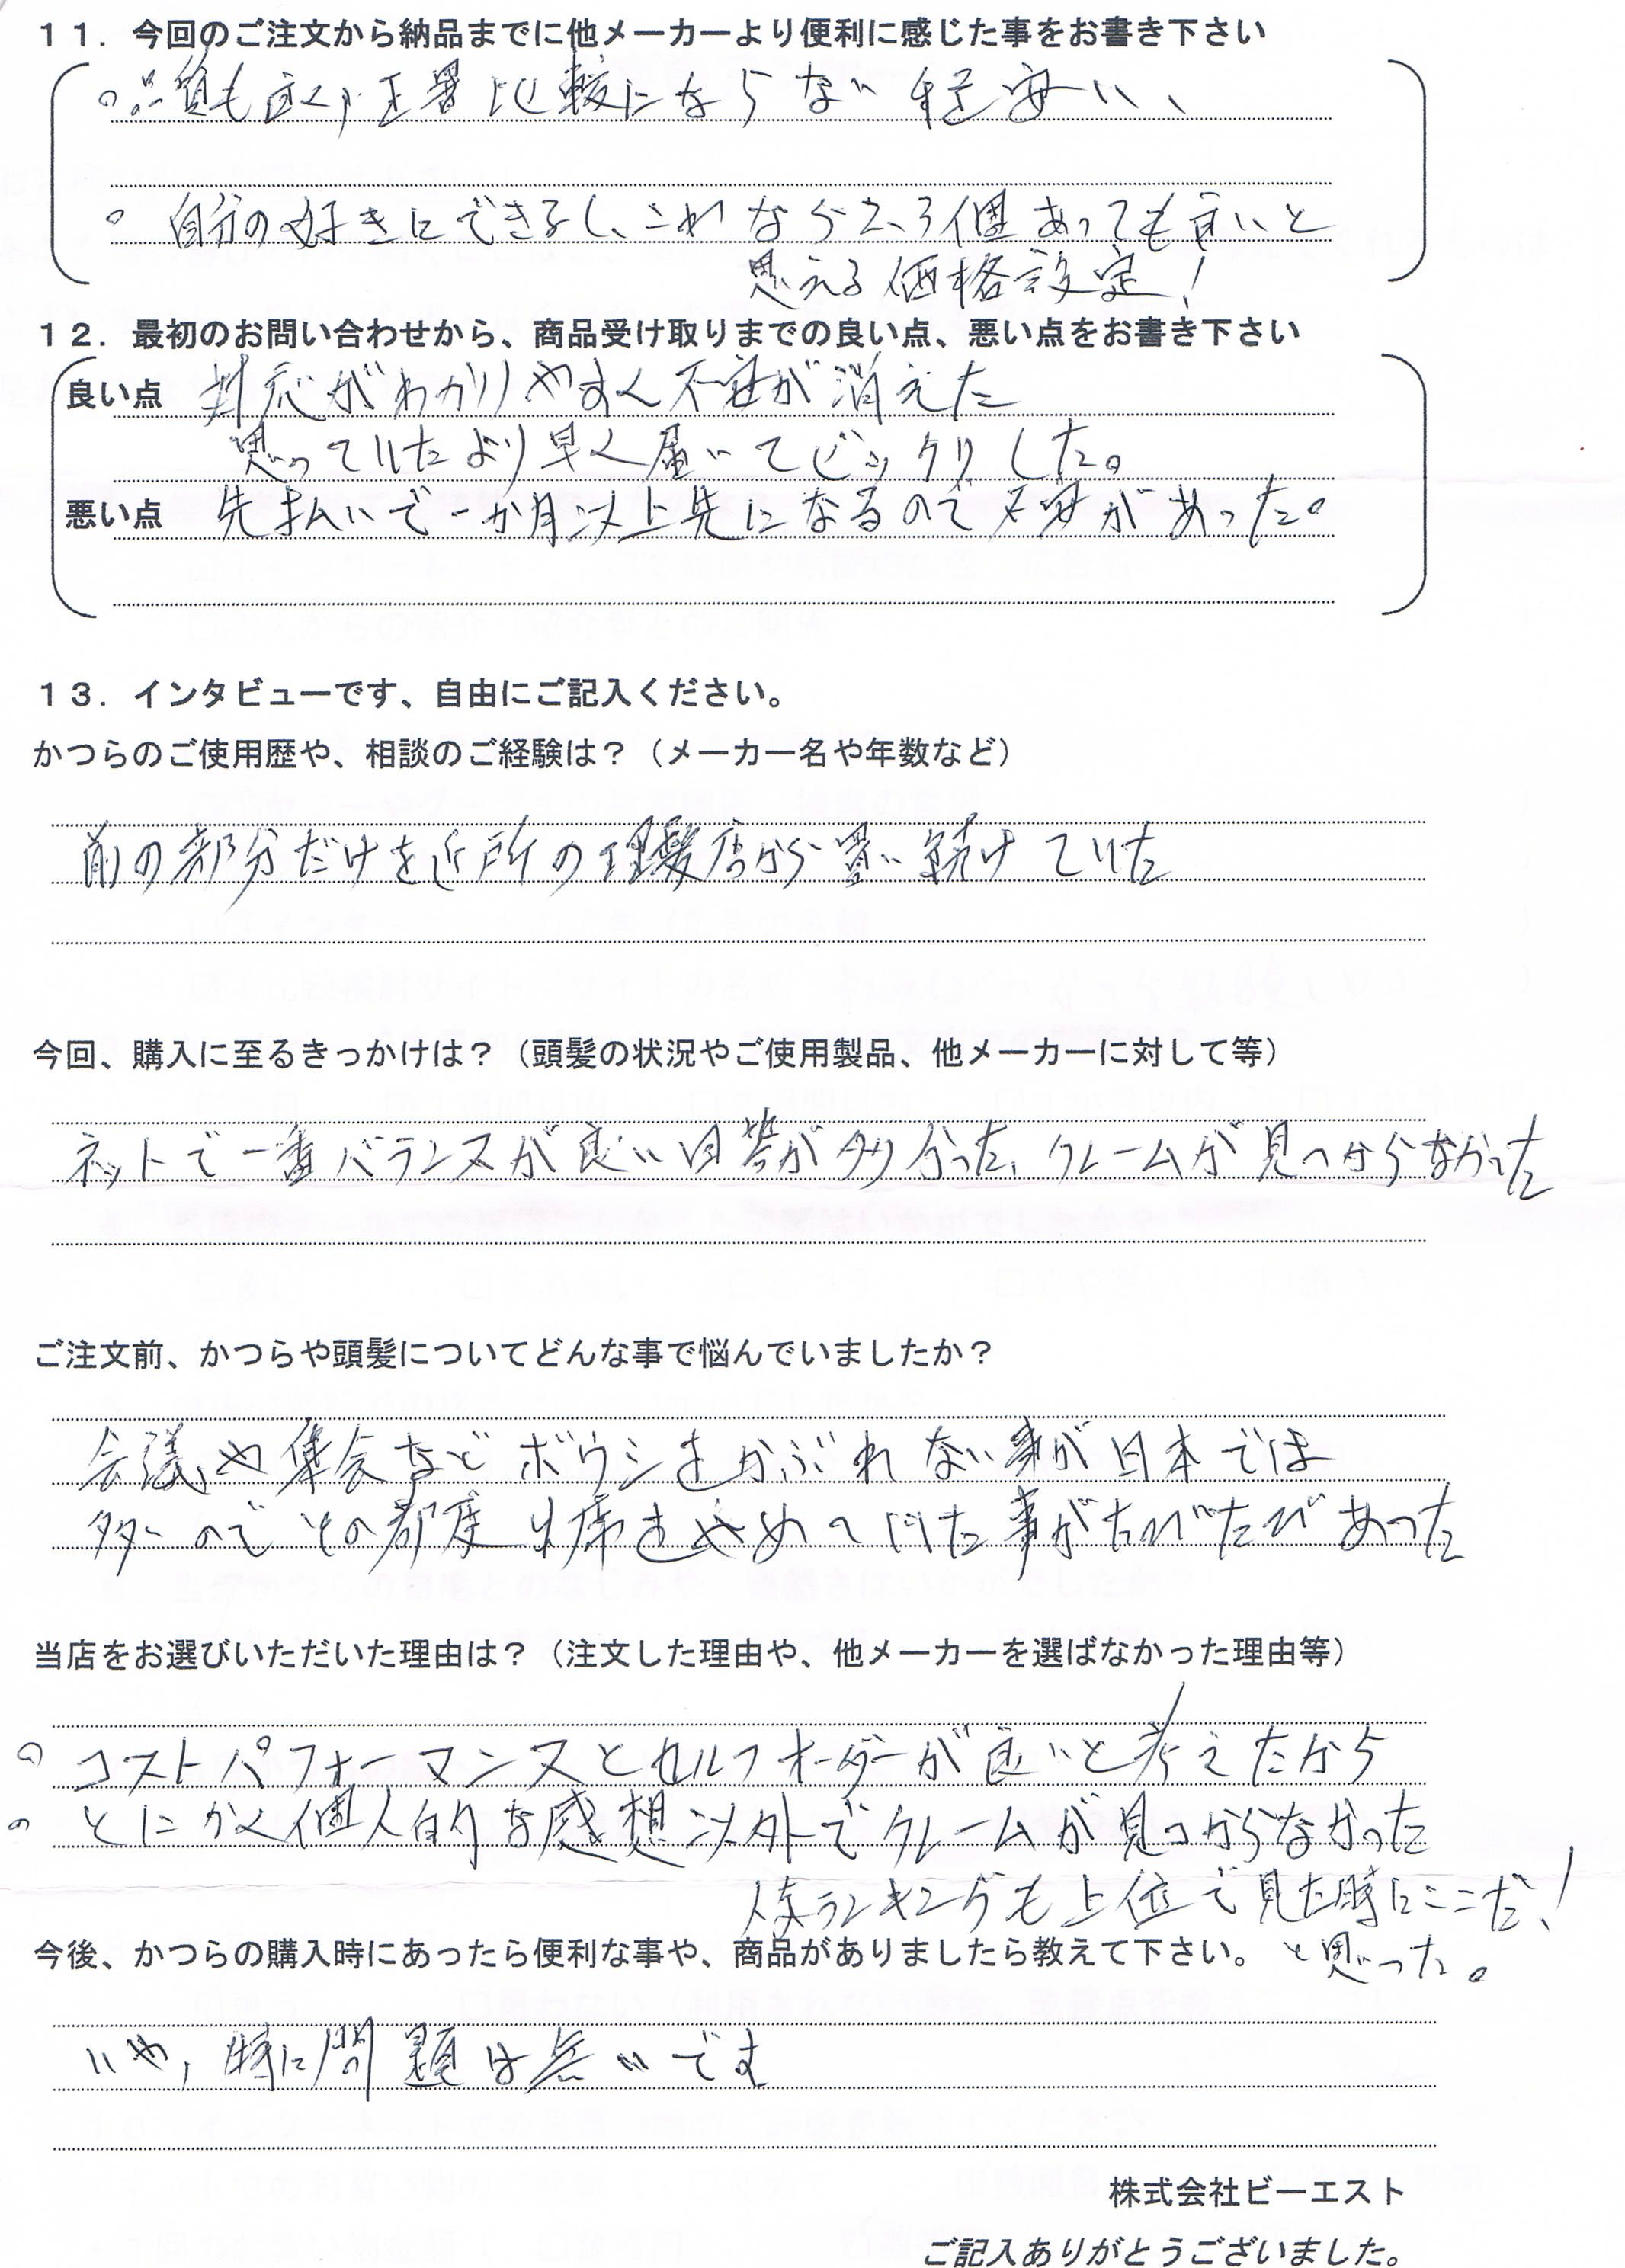 11．今回のご注文から納品までに他メーカーより便利に感じた事をお書き下さい
○品質も良く、正署比較にならない程安い、
○ 自分の好きにできるし、これなら2、3個あっても良いと
思える価格設定！
12．最初のお問い合わせから、商品受け取りまでの良い点、悪い点をお書き下さい
良い点 対応がわかりやすく不安が消えた
思っていたより早く届いてビックリした。
悪い点 先払いで一か月以上先になるので不安があった。
13．インタビューです、自由にご記入ください。
かつらのご使用歴や、相談のご経験は？（メーカー名や年数など）
前の部分だけを近所の理髪店から買い続けていた
今回、購入に至るきっかけは？（頭髪の状況やご使用製品、他メーカーに対して等）
ネットで一番バランスが良い回答が多かった、クレームが見つからなかった
ご注文前、かつらや頭髪についてどんな事で悩んでいましたか？
会議や集会などボウシをかぶれない事が日本では
多いのでその都度出席を辞めていた事がたびたびあった
当店をお選びいただいた理由は？（注文した理由や、他メーカーを選ばなかった理由等）
○ コストパフォーマンスとセルフオーダーが良いと考えたから
○ とにかく個人的な感想以外でクレームが見つからなかった
人気ランキングも上位で見た時にここだ！
と思った。
今後、かつらの購入時にあったら便利な事や、商品がありましたら教えて下さい。
いや，特に問題は無いです
株式会社ビーエスト
ご記入ありがとうございました。